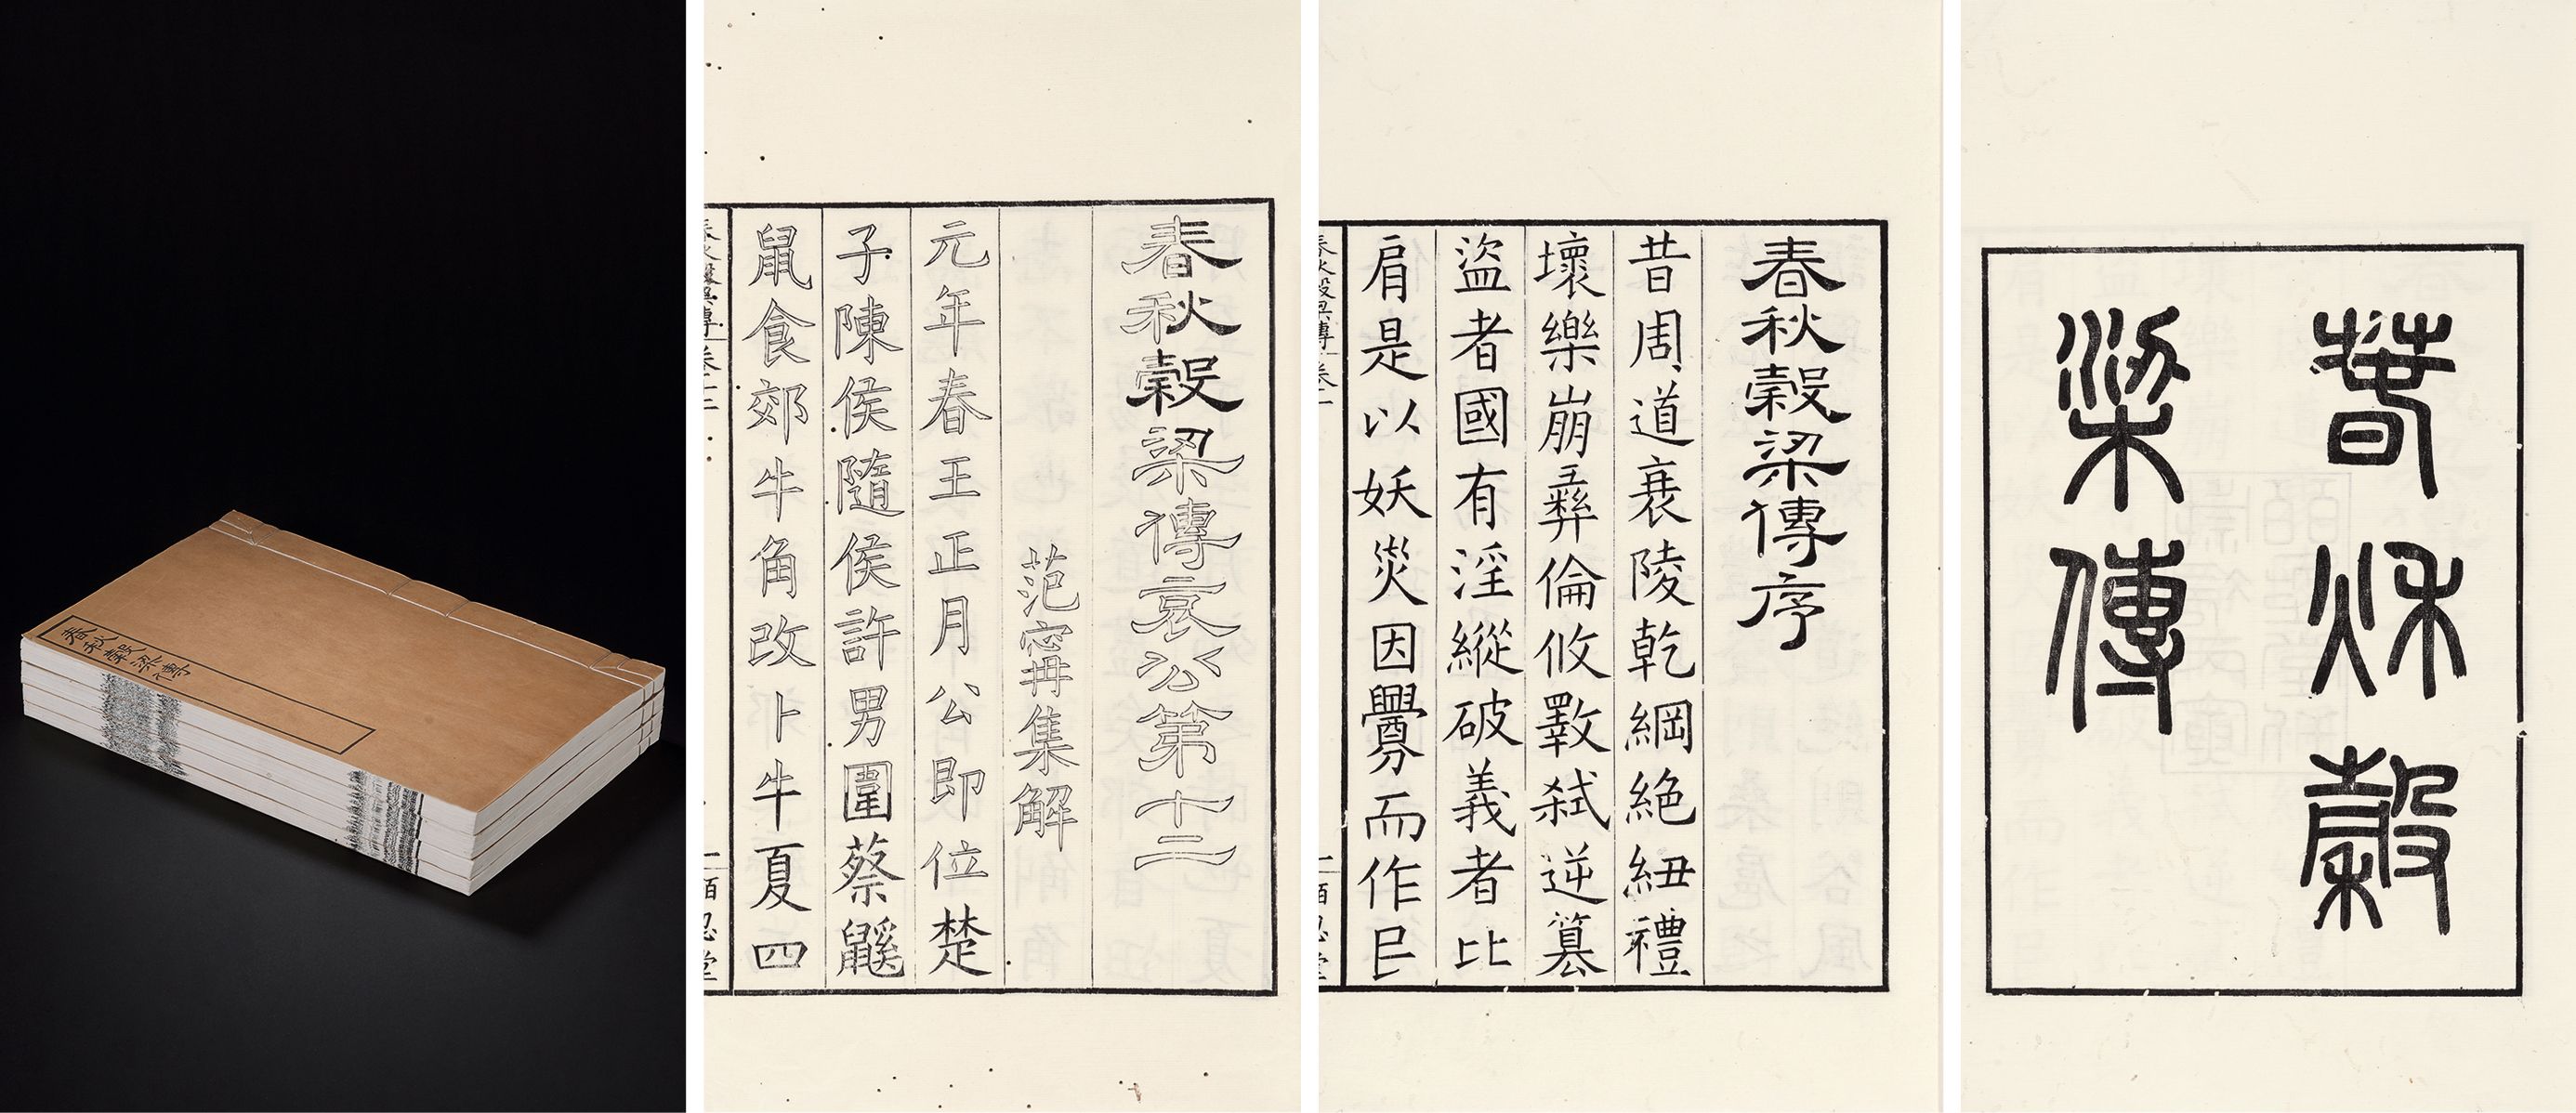 春秋穀梁傳
春秋穀梁傳哀公第十二
范甯集解
元年春王正月公即位楚
子陳侯隨侯許男圍蔡鼷
鼠食郊牛角改卜牛夏四
春秋穀梁傳 卷十二
一 百忍堂
春秋穀梁傳序
昔周道衰陵乾綱絕紐禮
壞樂崩彝倫攸斁弑逆篡
盜者國有淫縱破義者比
肩是以妖災因釁而作民
春秋穀梁傳 卷一
一 百忍堂
春秋穀
梁傳